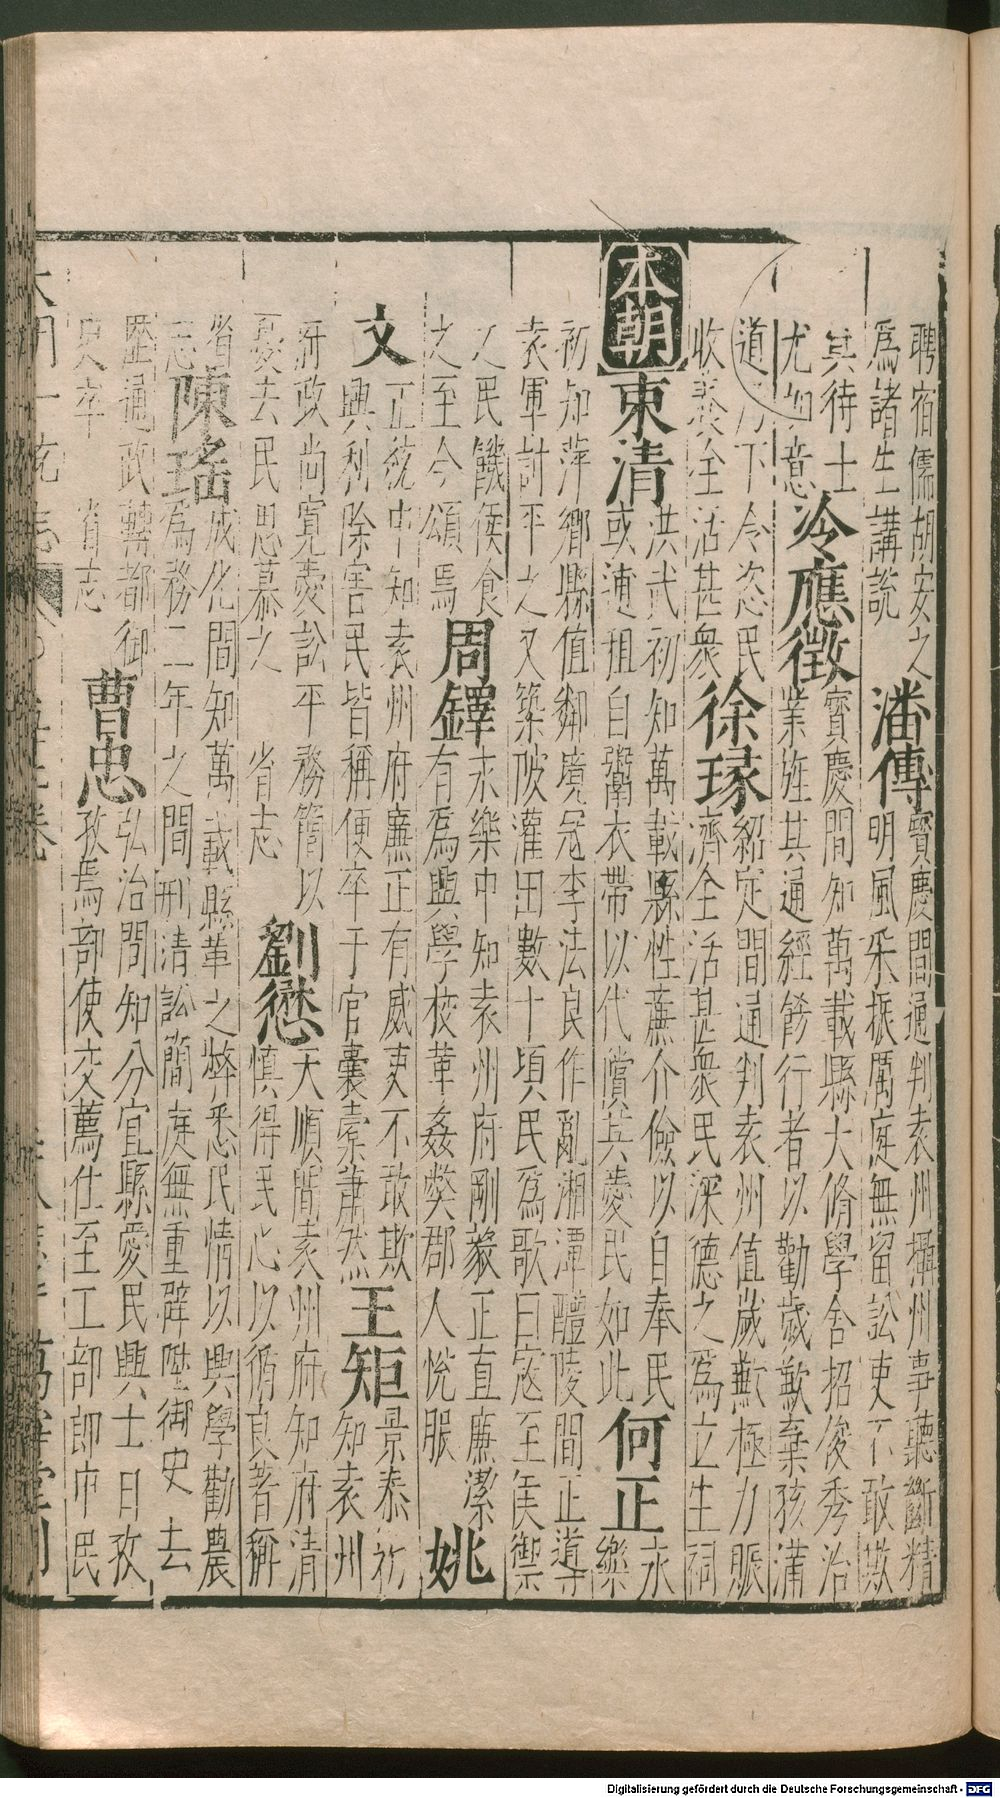 聘宿儒胡安之
爲諸生講說
潘傳
寶慶間通判袁州攝州事聽斷精
明風采振厲庭無留訟吏不敢欺
其待士
尤加意
冷應徵
寶慶間知萬載縣大脩學舍招俊秀治
業旌其通經飭行者以勸歲歉棄孩滿
道乃下令恣民
收養全活甚衆
徐琭
紹定間通判袁州值歲歉極力賑
濟全活甚衆民深德之爲立生祠
本朝
東清
洪武初知萬載縣性蕭介儉以自奉民
或逋租自鬻衣帶以代償其愛民如此
何正
永
樂
初知萍鄉縣值鄰境冦李法良作亂湘潭醴陵間正導
袁軍討平之又築陂灌田數十頃民爲歌曰寇至侯禦
之民饑侯食
之至今頌焉
周鐸
永樂中知袁州府剛毅正直廉潔
有爲興學校革姦弊郡人悅服
姚
文
正統中知袁州府廉正有威吏不敢欺
興利除害民皆稱便卒于官囊橐蕭然
王矩
景泰初
知袁州
府政尚寬憂訟平務簡以
憂去民思慕之 省志
劉懋
天順間袁州府知府清
慎得民心以循良著稱
省
志
陳瑤
成化間知萬載縣革之弊悉民情以興學勸農
爲務二年之間刑清訟簡庭無重辟陞御史去
歷通政轉都御
史卒 省志
曹忠
弘治間知分宜縣愛民興士日孜
孜焉部使交薦仕至工部郎中民
大明一統志
萬壽堂刊
Digitalisierung gefördert durch die Deutsche Forschungsgemeinschaft - DFG